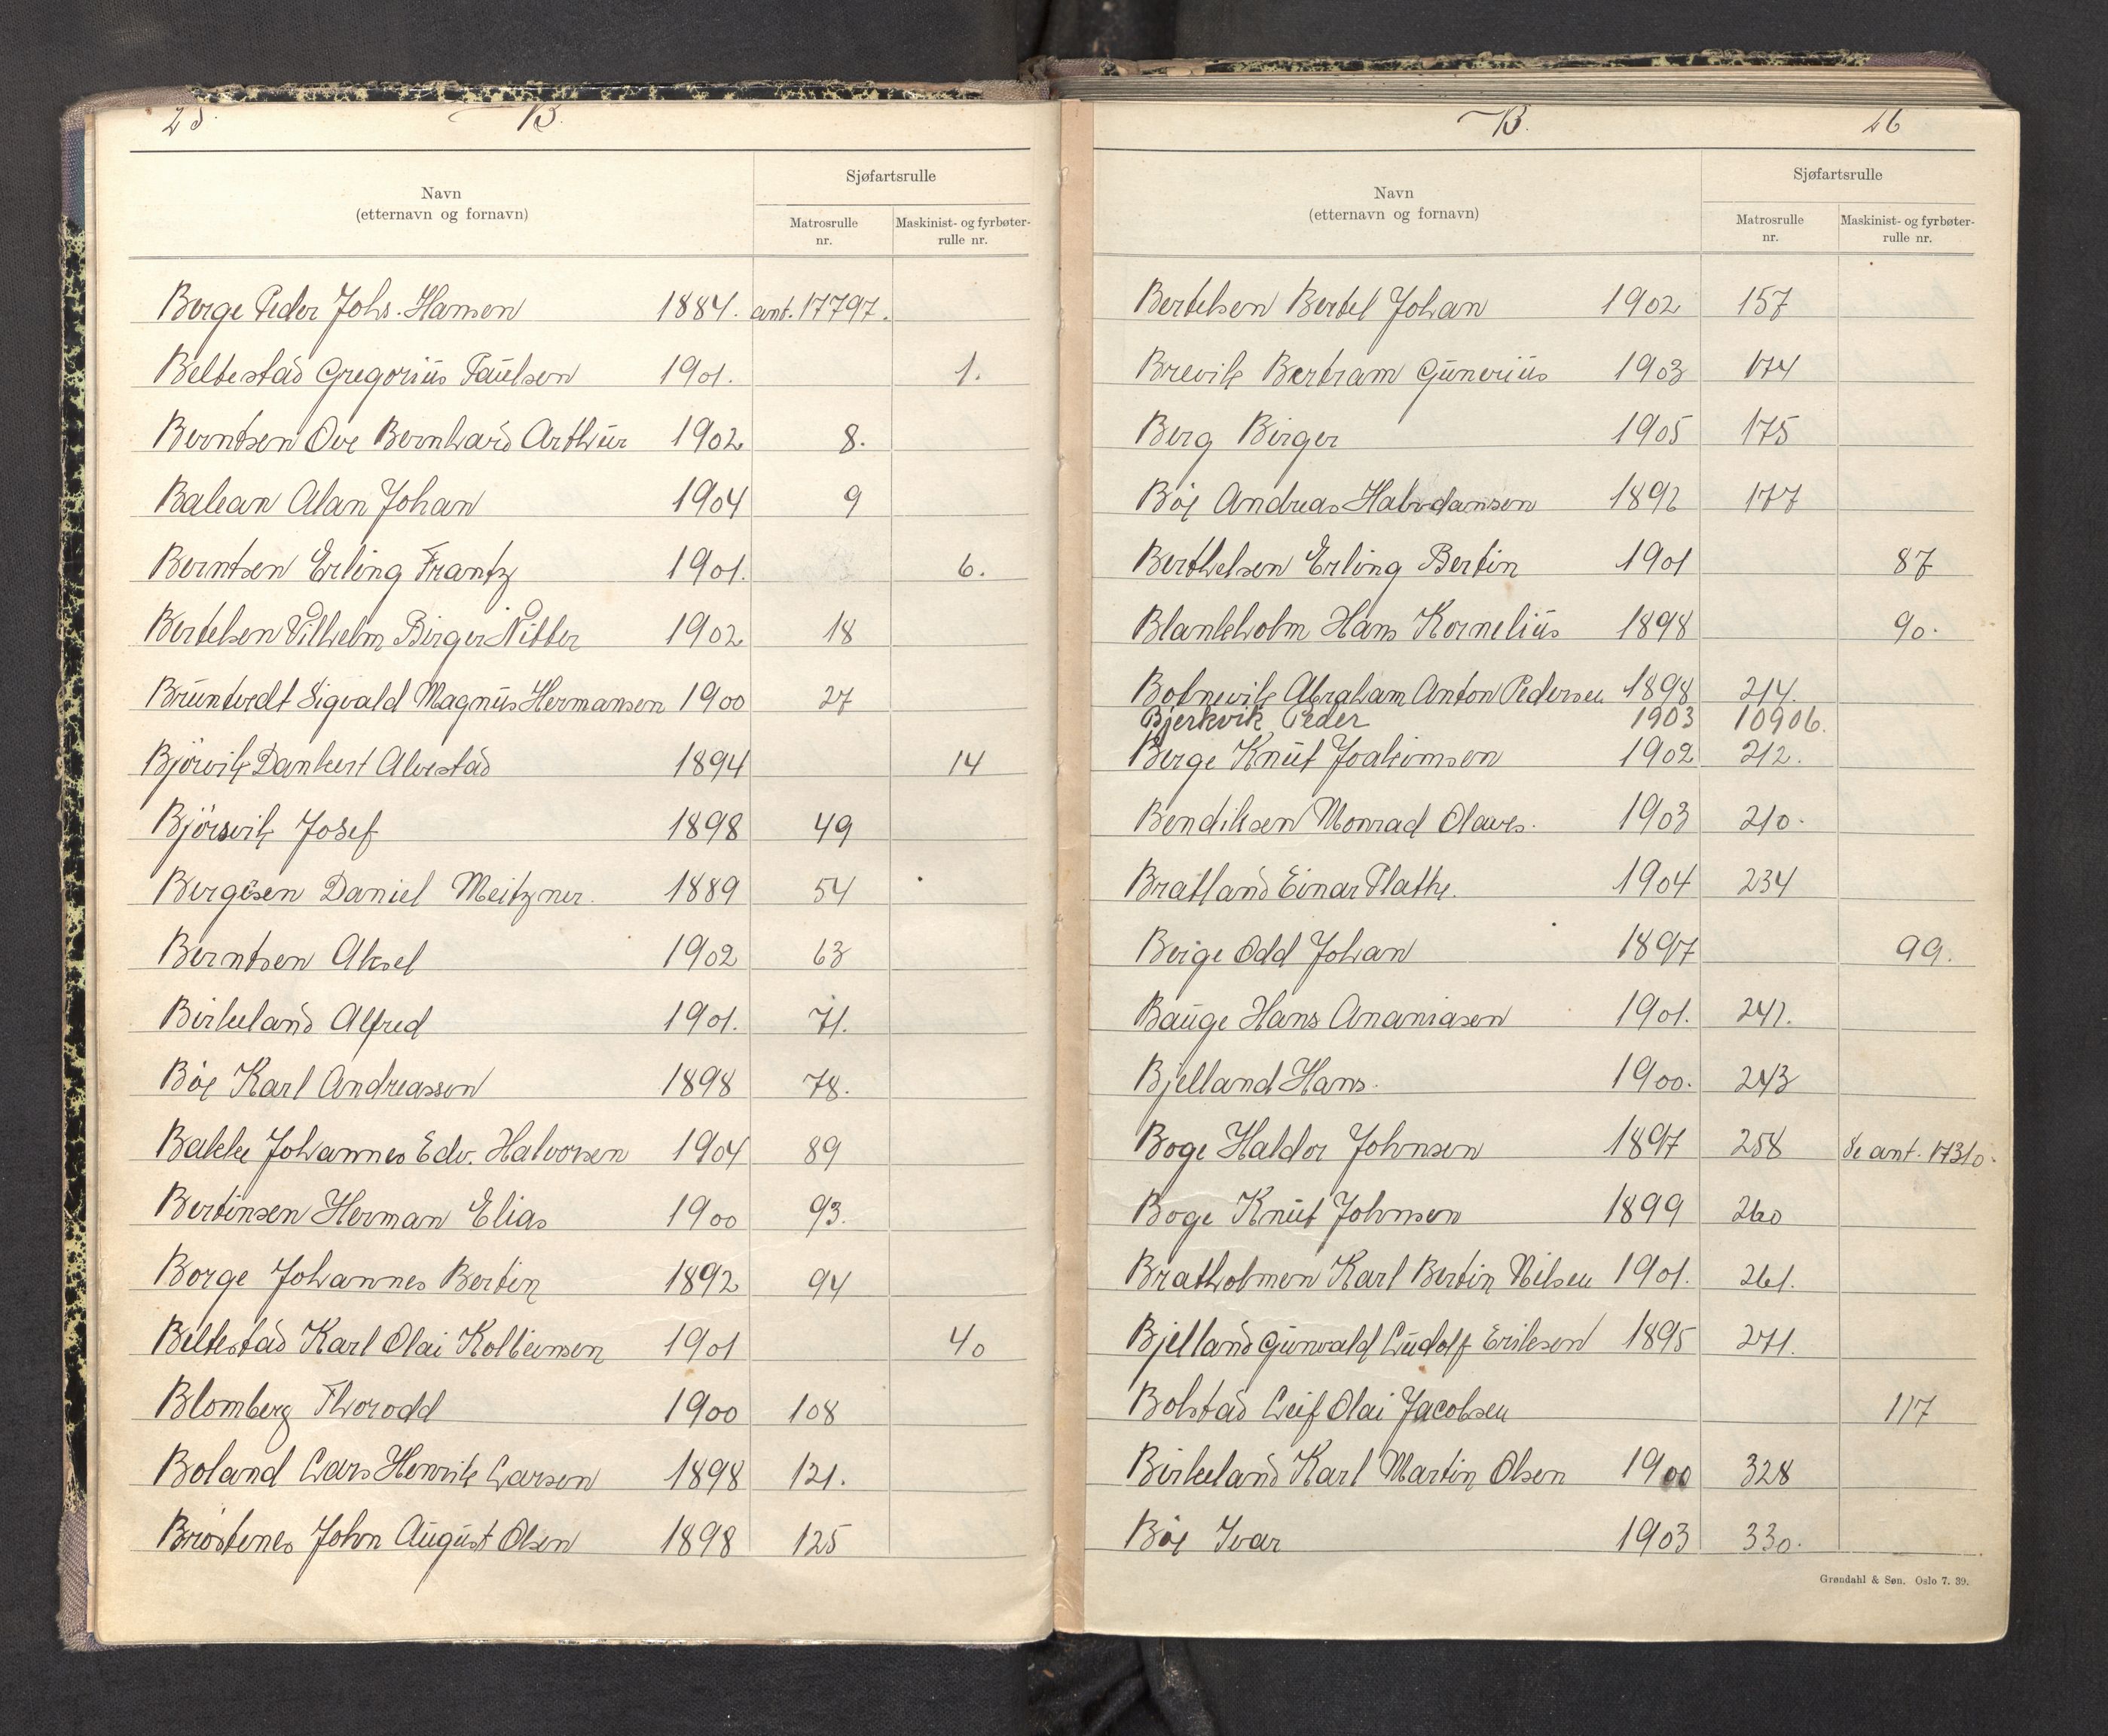 25. B.
Navn
(etternavn og fornavn)
Sjøfartsrulle
Matrosrulle
nr.
Maskinist- og fyrbøter-
rulle nr.
Berge Peder Johs. Hansen 1884. ant. 17797.
Beltestad Gregorius Paulsen 1901. 1.
Berntsen Ove Bernhard Arthur 1902 8.
Balean Alan Johan 1904 9
Berntsen Erling Frantz 1901. 6.
Bertelsen Vilhelm Birger Nitter 1902 18
Bruntvedt Sigvald Magnus Hermansen 1900 27
Bjørvik Dankert Alvestad 1894 14
Bjørsvik Josef 1898 49
Bergesen Daniel Meitzner. 1889 54
Berntsen Aksel 1902 63
Birkeland Alfred 1901. 71.
Bøe Karl Andreassen 1898 78.
Bakke Johannes Edv. Halvorsen 1904 89
Bertinsen Herman Elias 1900 93.
Borge Johannes Bertin 1892 94
Beltestad Karl Olai Kolbeinsen 1901 40
Blomberg Thorodd 1900 108
Boland Lars Henrik Larsen 1898 121.
Brøstenes John August Olsen 1898 125
B. 26
Navn
(etternavn og fornavn)
Sjøfartsrulle
Matrosrulle
nr.
Maskinist- og fyrbøter-
rulle nr.
Bertelsen Bertel Johan 1902 157
Brevik Bertram Gunerius 1903 174
Berg Birger 1905 175
Bøe Andreas Halvdansen 1892 177
Berthelsen Erling Bertin 1901 87
Blankholm Hans Kornelius 1898 90.
Botnevik Abraham Anton Pedersen 1898 214.
Bjerkvik Peder 1903 10906.
Berge Knut Joakimsen 1902 212.
Bendiksen Monrad Olaves. 1903 210.
Bratland Einar Flathe. 1904 234
Berge Odd Johan 1897 99.
Bauge Hans Ananiasen 1901. 241.
Bjelland Hans. 1900. 243
Boge Haldor Johnsen 1897 258 Se ant. 17310.
Boge Knut Johnsen 1899 260
Bratholmen Karl Bertin Nilsen 1901. 261.
Bjelland Gunvald Ludolf Eriksen 1895 271.
Bolstad Leif Olai Jacobsen 117
Birkeland Karl Martin Olsen 1900 328
Bøe Ivar 1903 330.
Grøndahl & Søn. Oslo 7. 39.